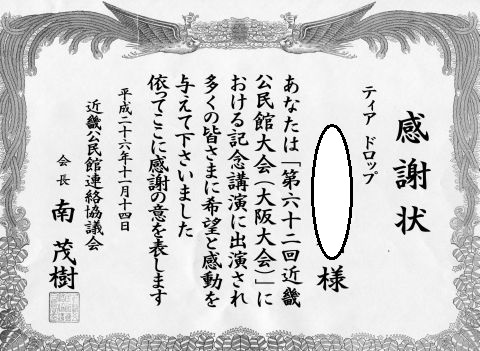 感謝状
ティア ドロップ
様
あなたは「第六十二回近畿
公民館大会(大阪大会)」に
おける記念講演に出演され
多くの皆さまに希望と感動を
与えて下さいました
依ってここに感謝の意を表します
平成二十六年十一月十四日
近畿公民館連絡協議会
会長 南 茂樹